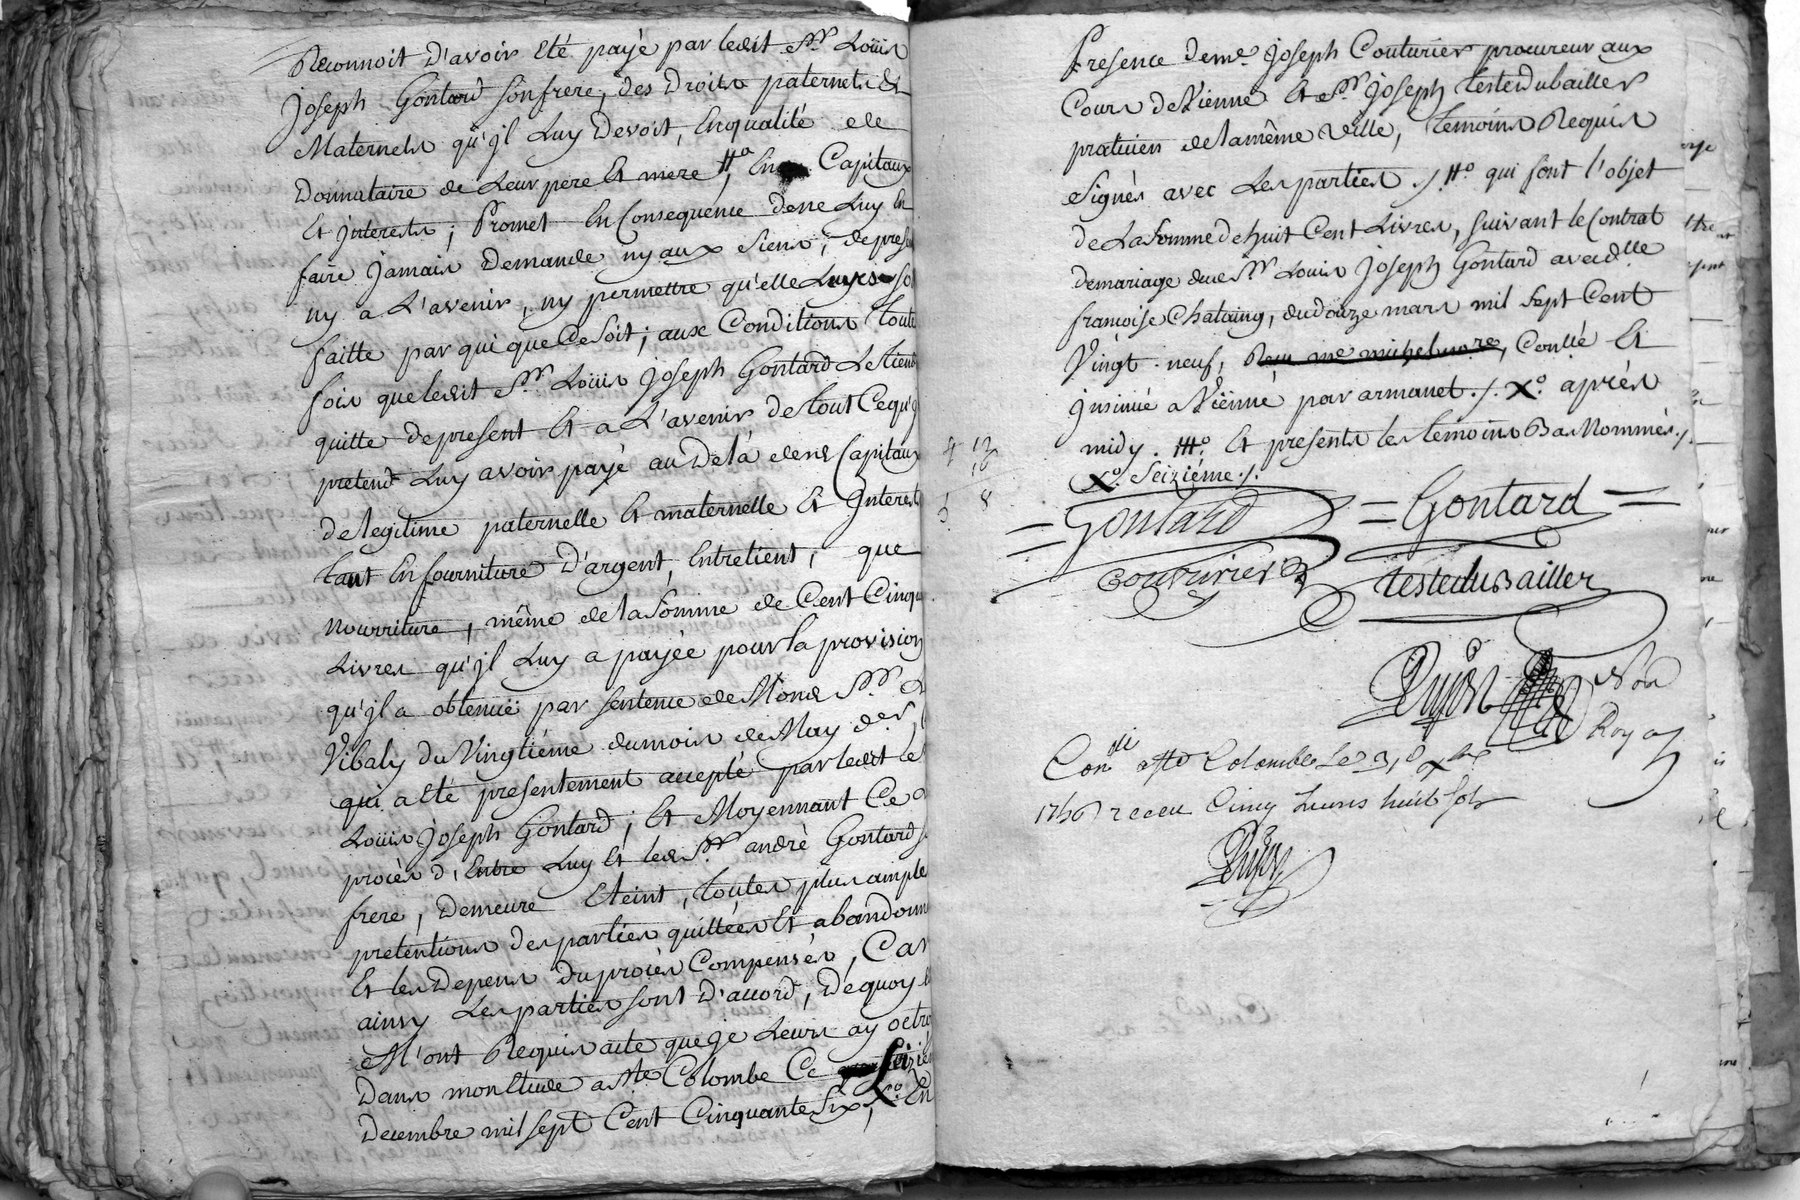 Reconnoit d'avoir Eté payé par ledit Sr. Loüis
Joseph Gontard son frere, des Droits paternels Et
Maternels qu'jl Luy Devoit, Enqualité de
Donnataire de Leur pere Et mere #.o, En Capitaux
Et jnterests; Promet En Consequence dene Luy En
faire Jamais Demande ny aux Siens, de present
ny a L'avenir, ny permettre qu'elle Luy soit
faitte par qui que Ce Soit; aux Conditions Toute
fois queledit Sr. Loüis Joseph Gontard Le tiendra
quitte depresent Et a L'avenir de tout Cequ'jl
pretend Luy avoir payé au Dela desd. Capitaux
delegitime paternelle Et maternelle Et Jnterests
tant En fourniture D'argent, Entretient, que
nourriture, même de la Somme de Cent Cinquante
Livres qu'jl Luy a payée pour la provision
qu'jl a obtenuë par sentence de Mond. Sr.
Vibaly du Vingtiéme du mois de May der.,
qui a Eté presentement accepté par ledit
Loüis Joseph Gontard; Et Moyennant Ce
procès d'Entre Luy Et led. Sr. andré Gontard
frere, Demeure Eteint, toutes plus amples
pretentions des parties quittées Et abandonnées
Et les Depens du procès Compensés, Car
ainsy Les parties sont D'accord, De quoy
M'ont Requis acte que je Leurs ay octroyé
Dans mon Etude a Ste. Colombe Ce Seizié
Decembre mil sept Cent Cinquante Six, X.o En
Presence de me. Joseph Couturier procureur aux
Cours de Vienne Et Sr. Joseph Testedubailler
praticien de la même Ville, Temoins Requis
Signés avec Les parties ./. #.o qui font l'objet
de La Somme de huit Cent Livres, Suivant le Contrat
de mariage du Sr. Louis Joseph Gontard avec dlle.
françoise Chataing, du douze mars mil sept Cent
Vingt-neuf, Reçu me michel, Conllé Et
Jnsinué a Vienne par armanet ./. X.o après
midy. ##.o Et presents les Temoins Bas Nommés ./.
X.o Seiziéme ./.
4 12
16
5 8
Gontard Gontard
Couturier testedubailler
Dujon No.re
Royal
Conllé a Ste Colombe Le 31 xbre
1756 receu Cinq Livres huit Sols
Dujon